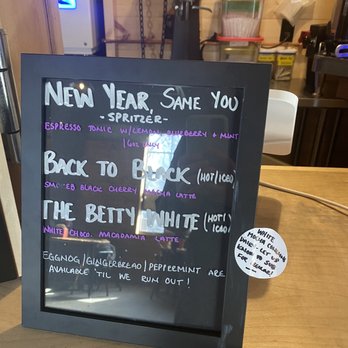 NEW YEAR, SAME YOU
-SPRITZER-
ESPRESSO TONIC W/LEMON, BLUEBERRY + MINT
16OZ ONLY
BACK TO BLACK (HOT/ICED)
SMOKED BLACK CHERRY MOCHA LATTE
THE BETTY WHITE (HOT/
ICED)
WHITE CHOCO. MACADAMIA LATTE
EGGNOG/GINGERBREAD/PEPPERMINT ARE
AVAILABLE 'TIL WE RUN OUT!
WHITE
MOCHA CONTAINS
DAIRY. LET US
KNOW TO SUB
FOR